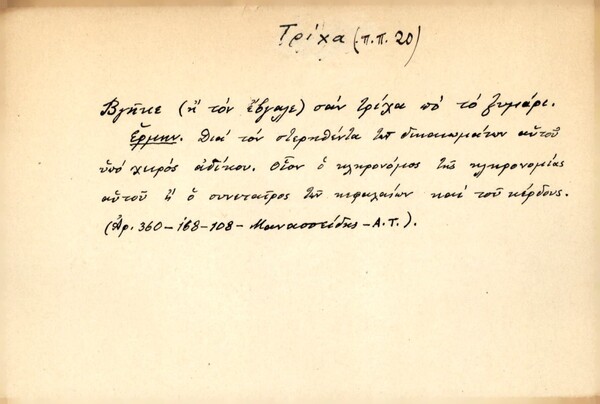 Τρίχα (π.π. 20)
Βγῆκε (ἢ τὸν ἔβγαλε) σὰν τρίχα 'πὸ τὸ ζυμάρι.
Ἑρμην. Διὰ τὸν στερηθέντα τῶν δικαιωμάτων αὐτοῦ
ὑπὸ χειρὸς ἀδίκου. Οἷον ὁ κληρονόμος τῆς κληρονομίας
αὐτοῦ ἢ ὁ συνεταῖρος τῶν κεφαλαίων καὶ τοῦ κέρδους.
(Ἀρ. 360-168-108-Μανασσείδης-Α.Τ.).